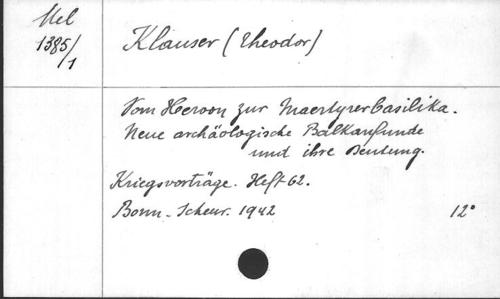 Mel
1385/1
Klauser (Theodor)
Vom Heroon zur Maertyrerbasilika.
Neue archäologische Balkanfunde
und ihre Deutung.
Kriegsvorträge. Heft 62.
Bonn. Scheur. 1942 12°